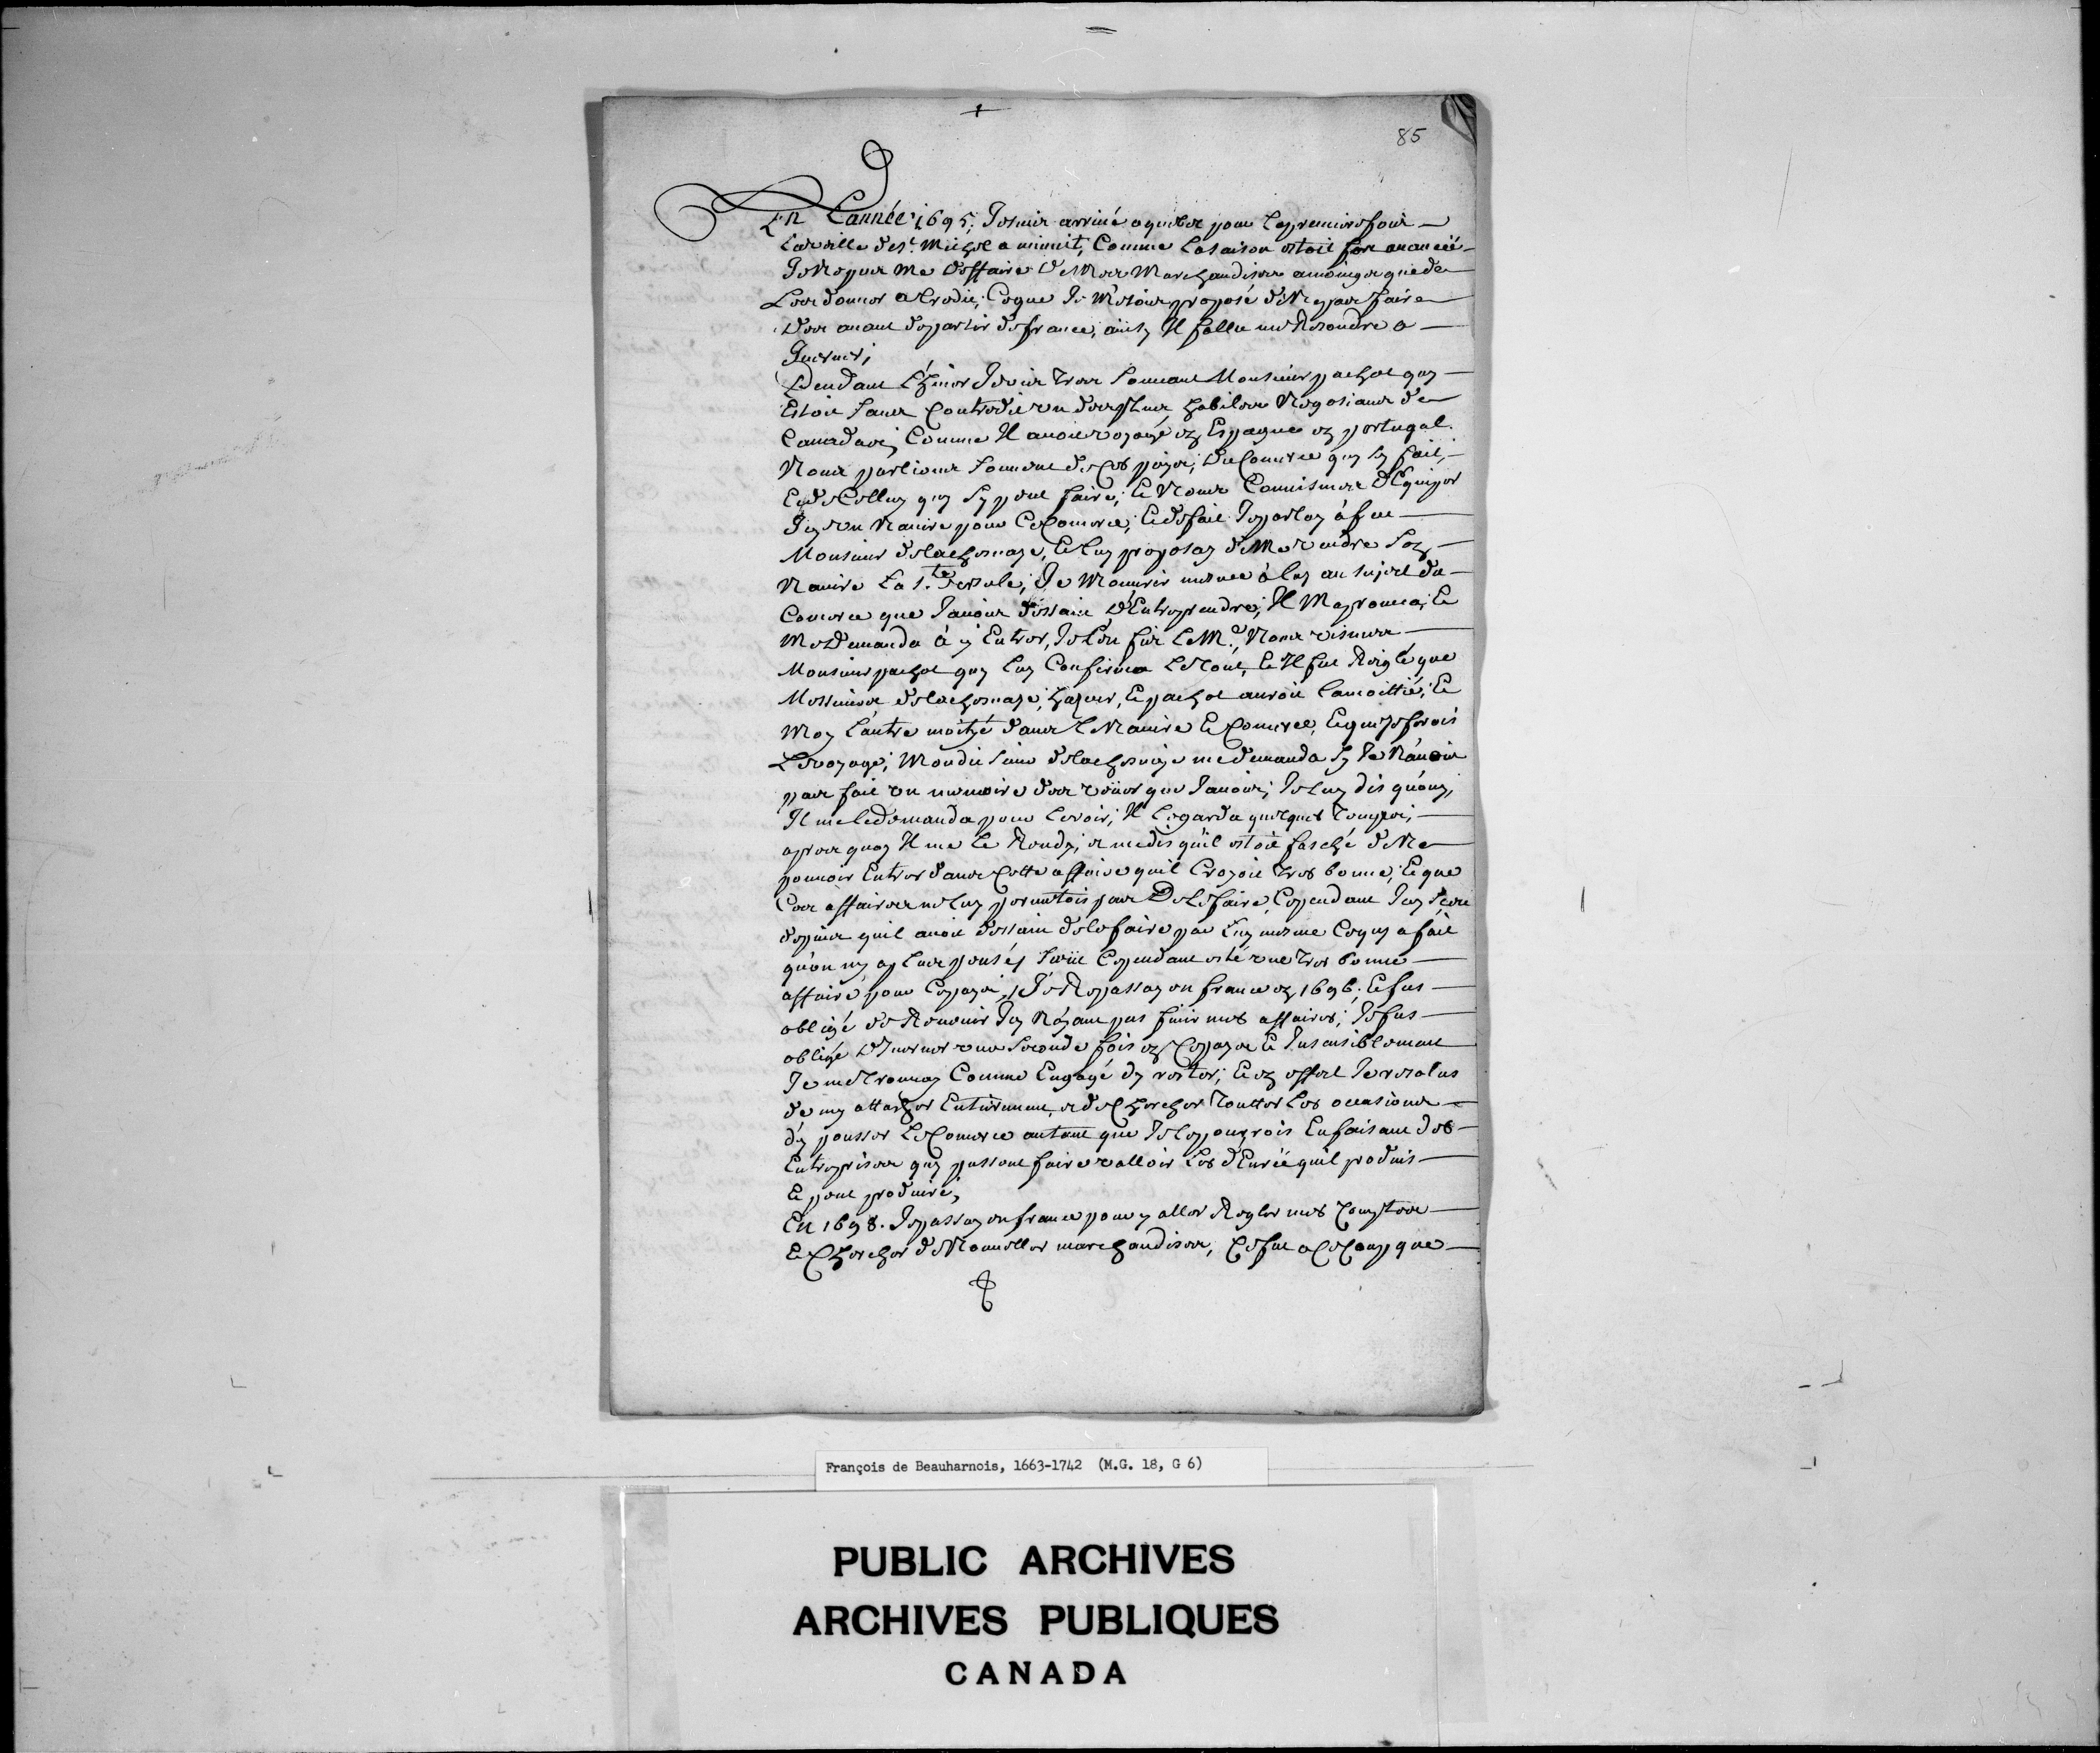 85
En Lannée 1695; Je suis arrivé a quebec pour la premiere fois
La veille de St. Michel a minuit, Comme la saison estoit fort avancéé
Je ne pus me deffaire de Mes Marchandises amoings que de
Les donner a Credit, Ce que Je m'estois proposé de Ne pas faire
avant de partir de france, ainsy Il fallu me Resoudre a
Iverner;
Pendant L'hiver Je vis tres souvent Monsieur pachot quy
Estoit sans Contredit un des plus habilles Negosians de
Canadas; Comme Il avoit voyagé en Espagne en portugal.
Nous parlions souvent de Ces païs; du Comerce quy sy fait,
Et de Celluy quy sy peut faire; Et Nous Convismes d'Equiper
Icy un Navire pour Ce Comerce; Et de fait Je parlay à feu
Monsieur de lachesnaye, Et luy proposay de Me vendre son
Navire La Ste. Ursule; Je m'ouvris mesme à luy au sujet du
Comerce que J'avois dessain d'Entreprendre; Il M'aprouva, Et
Me demanda à y Entrer, Je l'en fis le Me., Nous vismes
Monsieur pachot quy luy Confirma le tout, Et Il fut Reiglé que
Messieurs de lachesnaye, hazeur, Et pachot auroit la moittié; Et
Moy L'autre moityé dans Le Navire Et Comerce, Et que Je ferois
Le voyage; Mondit sieur de lachesnaye me demanda sy Je N'avois
pas fait un memoire des veües que J'avois; Je luy dis qu'ouy,
Il me le demanda pour le voir; Il le garda quelques temps;
apres quoy Il me le Rendy, et me dis qu'il estoit fasché de Ne
pouvoir Entrer dans Cette affaire qu'il Croyoit tres bonne, Et que
Ces affaires ne luy permetois pas De le faire, Cependant J'ay sçeu
depuis qu'il avoit dessain de le faire par luy mesme Ce quy a fait
qu'on ny a plus pensé; s'eüt Cependant esté une tres bonne
affaire pour Ce pays; Je Repassay en france en 1696; Et fus
obligé de Revenir Icy N'ayant pas fini mes affaires; Je fus
obligé d'Iverner une seconde fois en Ce pays Et Insansiblement
Je me trouvay Comme Engagé d'y rester; Et en effect Je resolus
de my attacher Entierement, et de Chercher Touttes Les occasions
d'y pousser Le Comerce autant que Je le pourois En faisant des
Entreprises quy pussent faire valloir Les d'Enréé qu'il produis
Et peut produire;
En 1698. Je passay en france pour y aller Regler mes Comptes
Et Chercher de Nouvelles marchandises, Ce fut a Ce Coup que
François de Beauharnois, 1663-1742 (M.G. 18, G 6)
PUBLIC ARCHIVES
ARCHIVES PUBLIQUES
CANADA